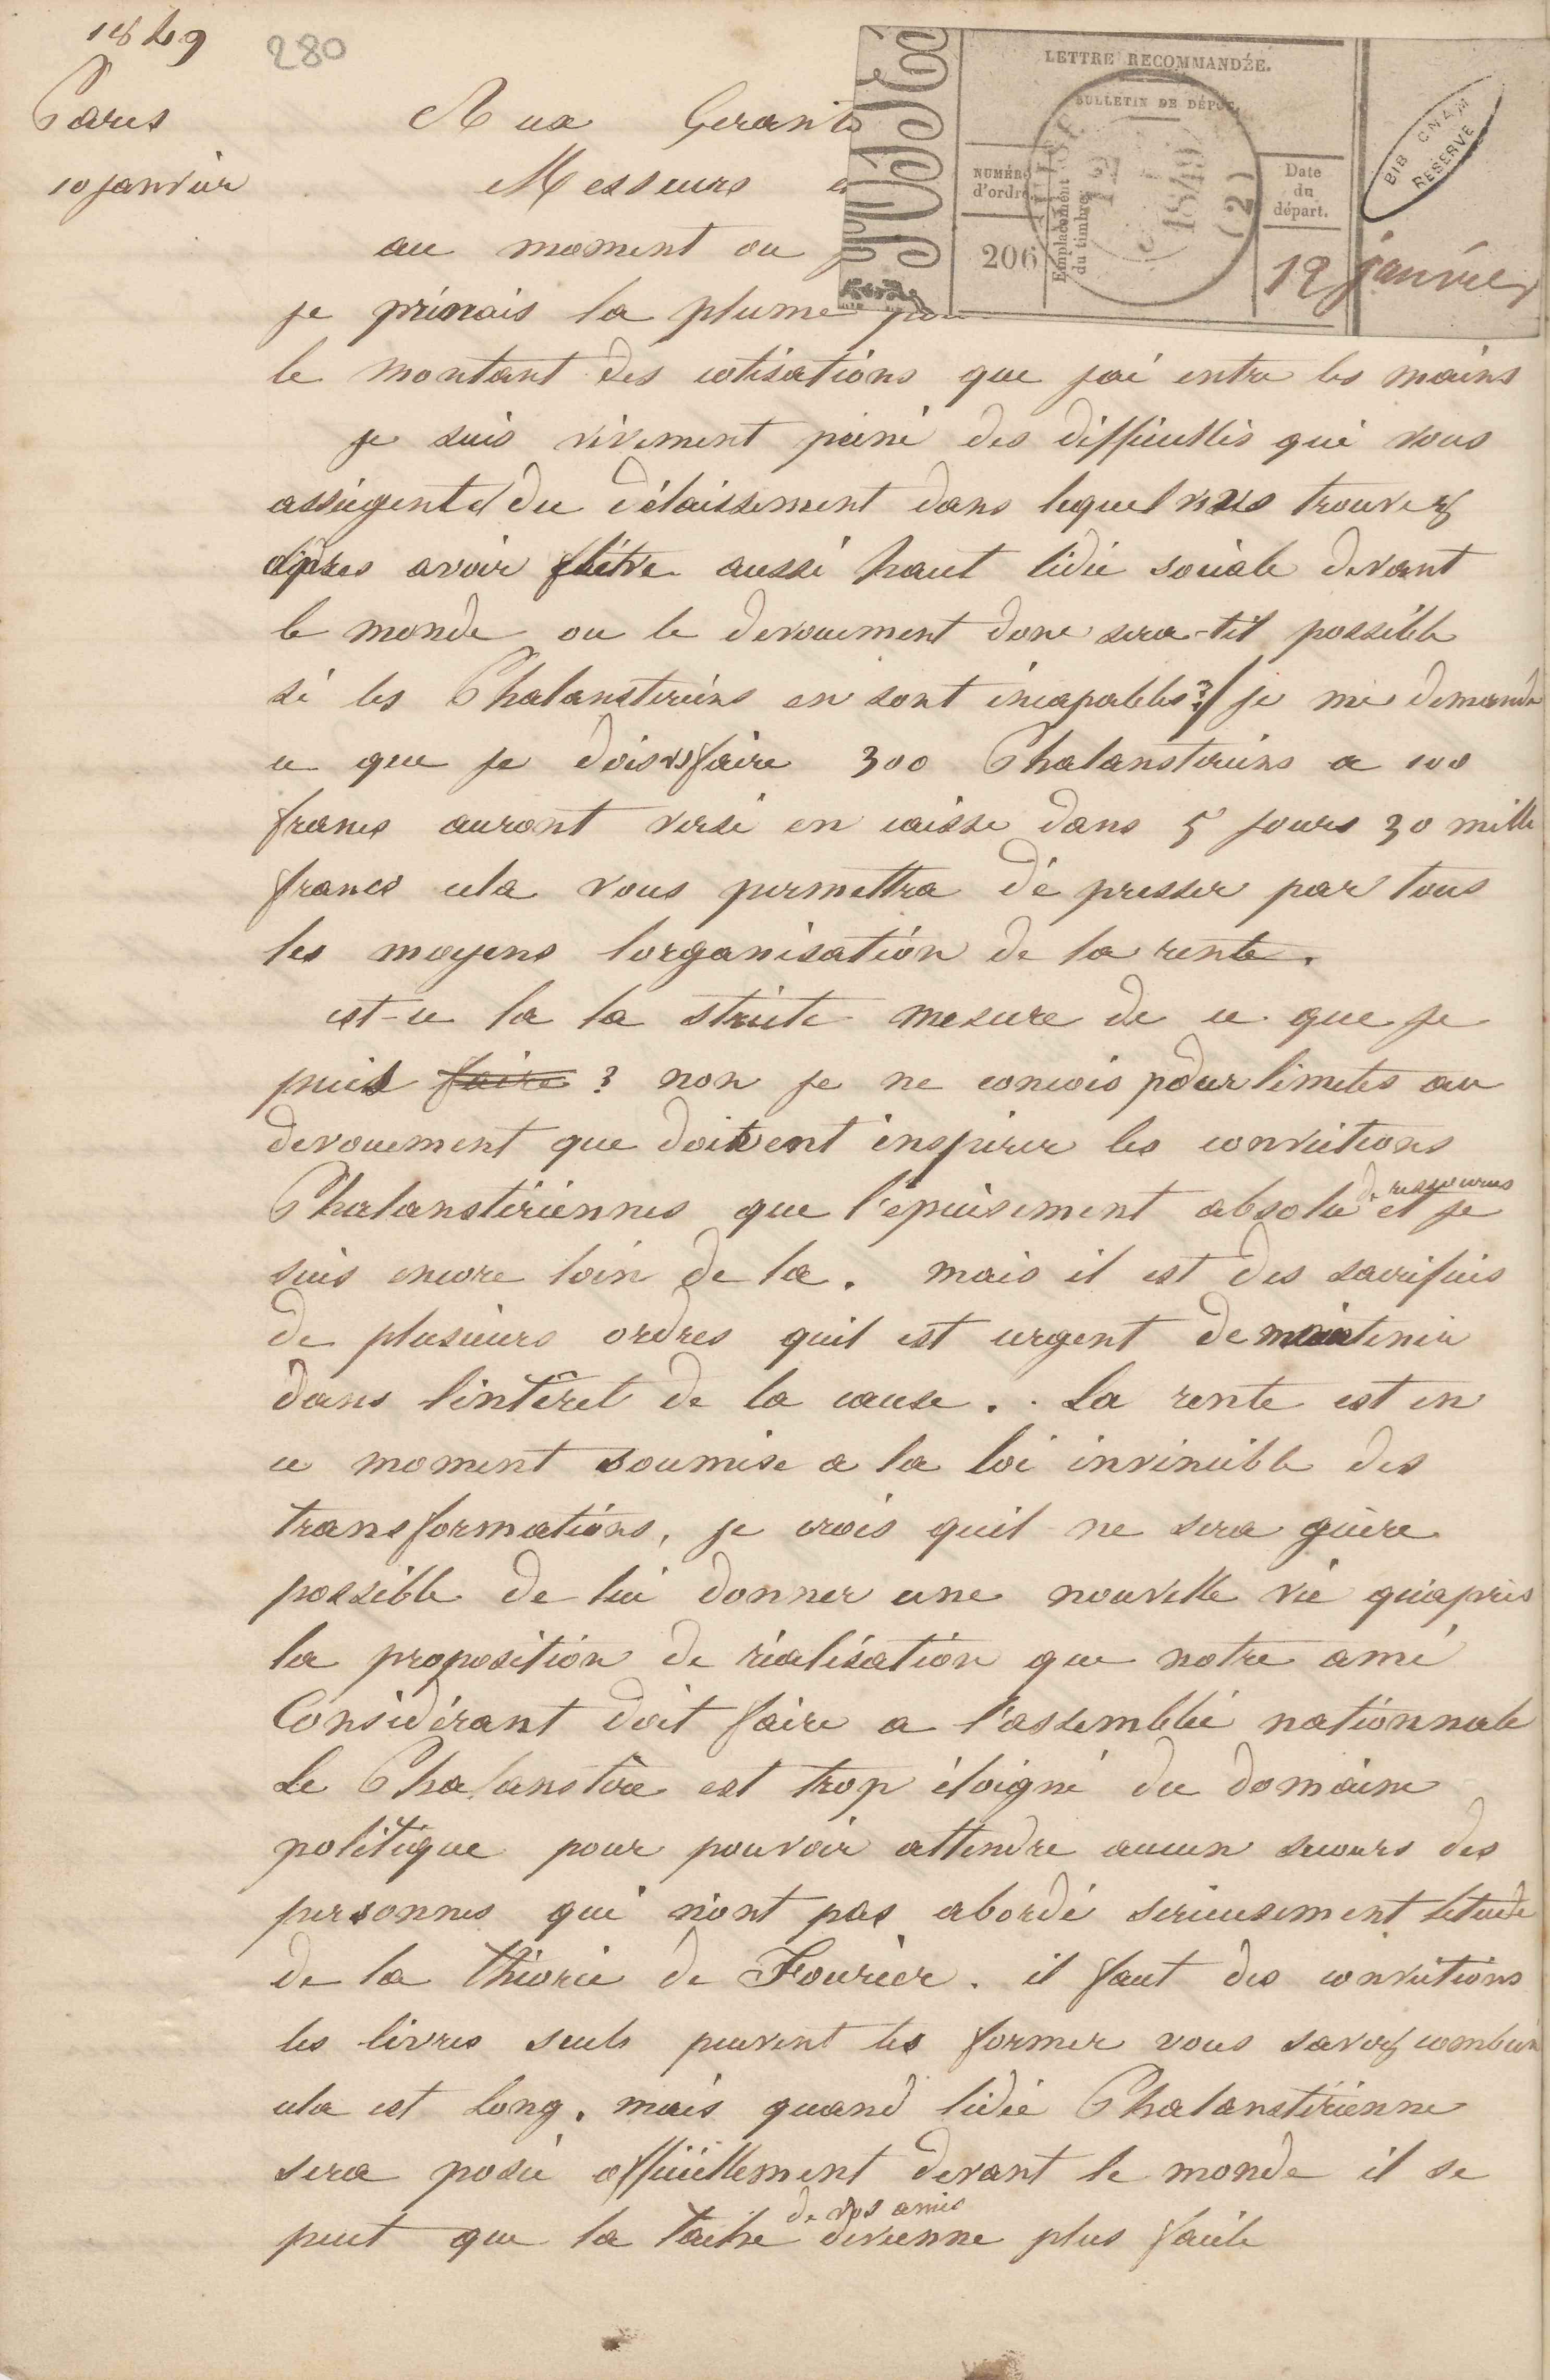 1849
280
Paris
10 janvier
Aux Gerants
Messieurs
au moment ou
je prenais la plume pou
le montant des cotisations que jai entre les mains
je suis vivement peiné des difficultés qui vous
assiegent et du délaissement dans lequel vous trouvez
après avoir aussi haut lidée sociale devant
le monde ou le devouement donc sera-t-il possible
si les Phalansteriens en sont incapables? je me demande
ce que je dois faire 300 Phalansteriens a 100
francs auront versé en caisse dans 5 jours 30 mille
francs cela vous permettra de presser par tous
les moyens lorganisation de la rente.
est-ce la la stricte mesure de ce que je
puis faire ? non je ne concois pour limites au
devouement que doivent inspirer les convictions
Phalanstériennes que l'epuisement absolu de ressources et je
suis encore loin de la. mais il est des sacrifices
de plusieurs ordres quil est urgent de maintenir
dans lintêret de la cause. La rente est en
ce moment soumise a la loi invincible des
transformations, je crois quil ne sera guère
possible de lui donner une nouvelle vie quaprès
la proposition de réalisation que notre ami
Considérant doit faire a l'assemblée nationnale
Le Phalanstère est trop éloigné du domaine
politique pour pouvoir attendre aucun secours des
personnes qui n'ont pas abordé serieusement letude
de la théorie de Fourier. il faut des convictions
les livres seuls peuvent les former vous savez combien
cela est long. mais quand lidée Phalanstérienne
sera posée officiellement devant le monde il se
peut que la tache de vos amis devienne plus facile
LETTRE RECOMMANDÉE.
BULLETIN DE DÉPÔT.
NUMÉRO
d'ordre.
206
Emplacement
du timbre
GUISE
12
1849
(2)
Date
du
départ.
12 janvier
BIB CNAM
RESERVE